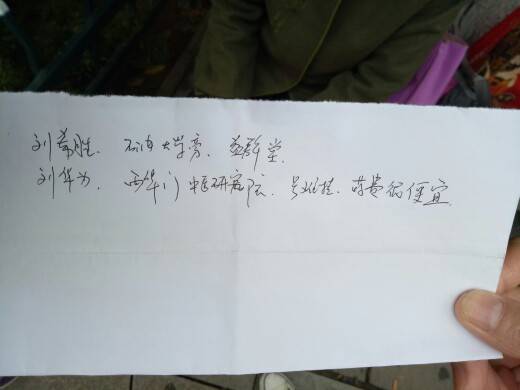 刘希胜. 石油大学旁. 益群堂.
刘华为. 西华门中医研究院. 号难挂. 药费很便宜.